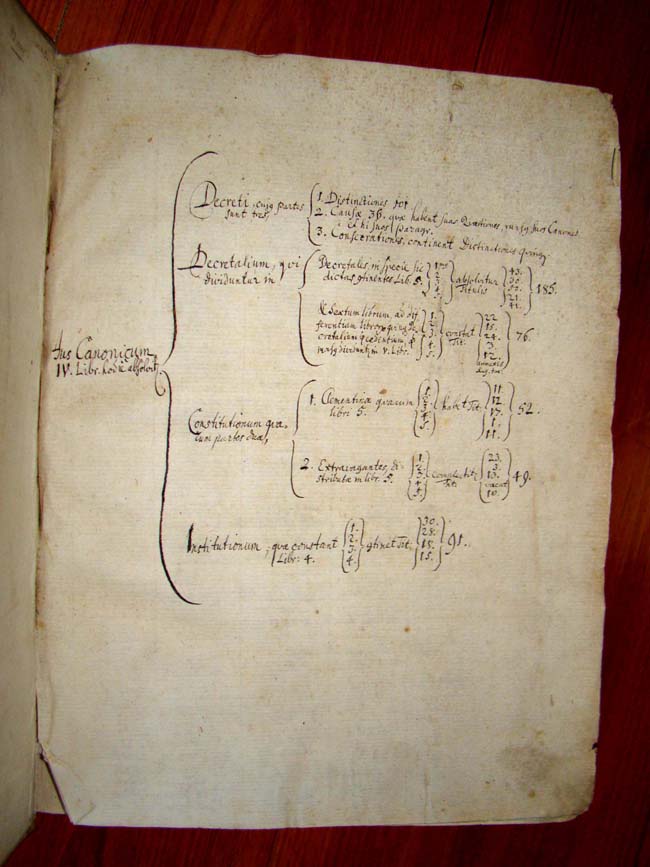 Jus Canonicum
IV. Libr. hodie absolvit.
Decreti, cujq partes
sunt tres,
1. Distinctiones 101
2. Causæ 36. quæ habent suas Quæstiones, rursq hæ suos Canones
et hi suos § paragr.
3. Consecrationes, continent Distinctiones quinq;
Decretalium, qui
dividuntur in
Decretales, in specie sic
dictas, gtinentes Lib. 5.
1.
2.
3.
4.
5.
absolvitur
Titulis
43.
30.
50.
21.
41.
185.
& Sextum librum, ad dif
ferentiam libror. quinq; De
cretalium præcedentium,
rursq dividunt, in V. Libr.
1.
2.
3.
4.
5.
constat
Tit.
22
15.
24.
3.
12.
76.
Constitutionum quæ
rum partes duæ,
1. Clementinæ quarum
libri 5.
1.
2.
3.
4.
5.
habet Tit.
11.
12.
17.
1.
11.
52.
2. Extravagantes, di
stributæ in libr. 5.
1.
2.
3.
4.
5.
complectit
Tit.
23.
3.
13.
vacat
10.
49.
Institutionum, quæ constant
Libr. 4.
1.
2.
3.
4.
gtinet Tit.
30.
28.
18.
15.
91.